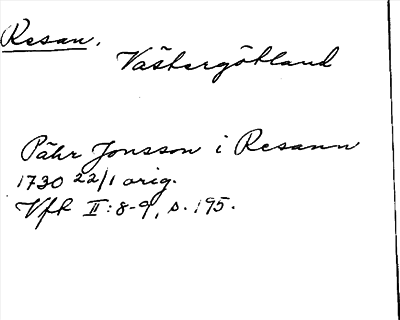 Resan.
Västergötland
Påhr Jonsson i Resann
1730 22/1 orig.
Vfr II:8-9, s. 195.